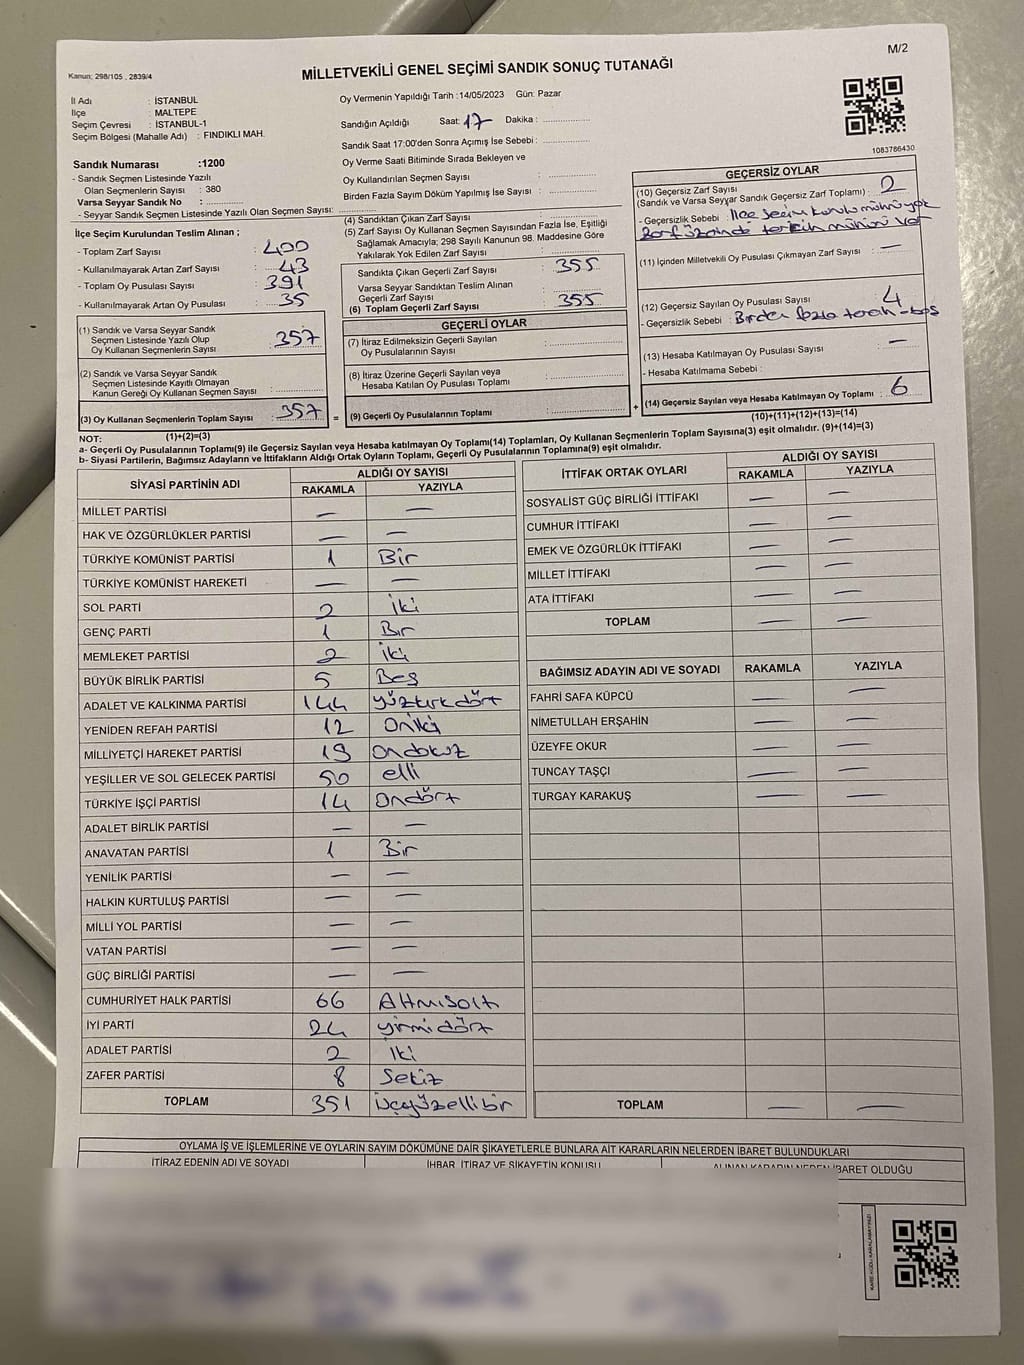 M/2
Kanun: 298/105 , 2839/4
MİLLETVEKİLİ GENEL SEÇİMİ SANDIK SONUÇ TUTANAĞI
İl Adı : İSTANBUL
İlçe : MALTEPE
Seçim Çevresi : İSTANBUL-1
Seçim Bölgesi (Mahalle Adı) : FINDIKLI MAH.
Sandık Numarası :1200
- Sandık Seçmen Listesinde Yazılı
Olan Seçmenlerin Sayısı : 380
Varsa Seyyar Sandık No :
- Seyyar Sandık Seçmen Listesinde Yazılı Olan Seçmen Sayısı:
İlçe Seçim Kurulundan Teslim Alınan ;
- Toplam Zarf Sayısı : 400
- Kullanılmayarak Artan Zarf Sayısı : 43
- Toplam Oy Pusulası Sayısı : 391
- Kullanılmayarak Artan Oy Pusulası : 35
(1) Sandık ve Varsa Seyyar Sandık
Seçmen Listesinde Yazılı Olup
Oy Kullanan Seçmenlerin Sayısı : 357
(2) Sandık ve Varsa Seyyar Sandık
Seçmen Listesinde Kayıtlı Olmayan
Kanun Gereği Oy Kullanan Seçmen Sayısı :
(3) Oy Kullanan Seçmenlerin Toplam Sayısı : 357 =
(1)+(2)=(3)
Oy Vermenin Yapıldığı Tarih :14/05/2023 Gün: Pazar
Sandığın Açıldığı Saat: 17 Dakika :
Sandık Saat 17:00'den Sonra Açımış İse Sebebi :
Oy Verme Saati Bitiminde Sırada Bekleyen ve
Oy Kullandırılan Seçmen Sayısı :
Birden Fazla Sayım Döküm Yapılmış İse Sayısı :
(4) Sandıktan Çıkan Zarf Sayısı :
(5) Zarf Sayısı Oy Kullanan Seçmen Sayısından Fazla İse, Eşitliği
Sağlamak Amacıyla; 298 Sayılı Kanunun 98. Maddesine Göre
Yakılarak Yok Edilen Zarf Sayısı :
Sandıkta Çıkan Geçerli Zarf Sayısı : 355
Varsa Seyyar Sandıktan Teslim Alınan
Geçerli Zarf Sayısı :
(6) Toplam Geçerli Zarf Sayısı : 355
GEÇERLİ OYLAR
(7) İtiraz Edilmeksizin Geçerli Sayılan
Oy Pusulalarının Sayısı :
(8) İtiraz Üzerine Geçerli Sayılan veya
Hesaba Katılan Oy Pusulası Toplamı :
(9) Geçerli Oy Pusulalarının Toplamı : +
1083786430
GEÇERSİZ OYLAR
(10) Geçersiz Zarf Sayısı
(Sandık ve Varsa Seyyar Sandık Geçersiz Zarf Toplamı) : 2
- Geçersizlik Sebebi : İlçe Seçim kurulu mührü yok
Zarf üzerinde tercih mührü var
(11) İçinden Milletvekili Oy Pusulası Çıkmayan Zarf Sayısı : —
(12) Geçersiz Sayılan Oy Pusulası Sayısı : 4
- Geçersizlik Sebebi : Birden fazla tercih - boş
(13) Hesaba Katılmayan Oy Pusulası Sayısı : —
- Hesaba Katılmama Sebebi :
(14) Geçersiz Sayılan veya Hesaba Katılmayan Oy Toplamı : 6
(10)+(11)+(12)+(13)=(14)
NOT:
a- Geçerli Oy Pusulalarının Toplamı(9) ile Geçersiz Sayılan veya Hesaba katılmayan Oy Toplamı(14) Toplamları, Oy Kullanan Seçmenlerin Toplam Sayısına(3) eşit olmalıdır. (9)+(14)=(3)
b- Siyasi Partilerin, Bağımsız Adayların ve İttifakların Aldığı Ortak Oyların Toplamı, Geçerli Oy Pusulalarının Toplamına(9) eşit olmalıdır.
SİYASİ PARTİNİN ADI ALDIĞI OY SAYISI
RAKAMLA YAZIYLA
MİLLET PARTİSİ — —
HAK VE ÖZGÜRLÜKLER PARTİSİ — —
TÜRKİYE KOMÜNİST PARTİSİ 1 Bir
TÜRKİYE KOMÜNİST HAREKETİ — —
SOL PARTİ 2 İki
GENÇ PARTİ 1 Bir
MEMLEKET PARTİSİ 2 İki
BÜYÜK BİRLİK PARTİSİ 5 Beş
ADALET VE KALKINMA PARTİSİ 144 yüzkırkdört
YENİDEN REFAH PARTİSİ 12 Oniki
MİLLİYETÇİ HAREKET PARTİSİ 19 Ondokuz
YEŞİLLER VE SOL GELECEK PARTİSİ 50 elli
TÜRKİYE İŞÇİ PARTİSİ 14 Ondört
ADALET BİRLİK PARTİSİ — —
ANAVATAN PARTİSİ 1 Bir
YENİLİK PARTİSİ — —
HALKIN KURTULUŞ PARTİSİ — —
MİLLİ YOL PARTİSİ — —
VATAN PARTİSİ — —
GÜÇ BİRLİĞİ PARTİSİ — —
CUMHURİYET HALK PARTİSİ 66 Altmışaltı
İYİ PARTİ 24 yirmidört
ADALET PARTİSİ 2 İki
ZAFER PARTİSİ 8 Sekiz
TOPLAM 351 üçyüzellibir
İTTİFAK ORTAK OYLARI ALDIĞI OY SAYISI
RAKAMLA YAZIYLA
SOSYALİST GÜÇ BİRLİĞİ İTTİFAKI — —
CUMHUR İTTİFAKI — —
EMEK VE ÖZGÜRLÜK İTTİFAKI — —
MİLLET İTTİFAKI — —
ATA İTTİFAKI — —
TOPLAM — —
BAĞIMSIZ ADAYIN ADI VE SOYADI RAKAMLA YAZIYLA
FAHRİ SAFA KÜPCÜ — —
NİMETULLAH ERŞAHİN — —
ÜZEYFE OKUR — —
TUNCAY TAŞÇI — —
TURGAY KARAKUŞ — —
TOPLAM — —
OYLAMA İŞ VE İŞLEMLERİNE VE OYLARIN SAYIM DÖKÜMÜNE DAİR ŞİKAYETLERLE BUNLARA AİT KARARLARIN NELERDEN İBARET BULUNDUKLARI
İTİRAZ EDENİN ADI VE SOYADI İHBAR, İTİRAZ VE ŞİKAYETİN KONUSU ALINAN KARARIN NEDEN İBARET OLDUĞU